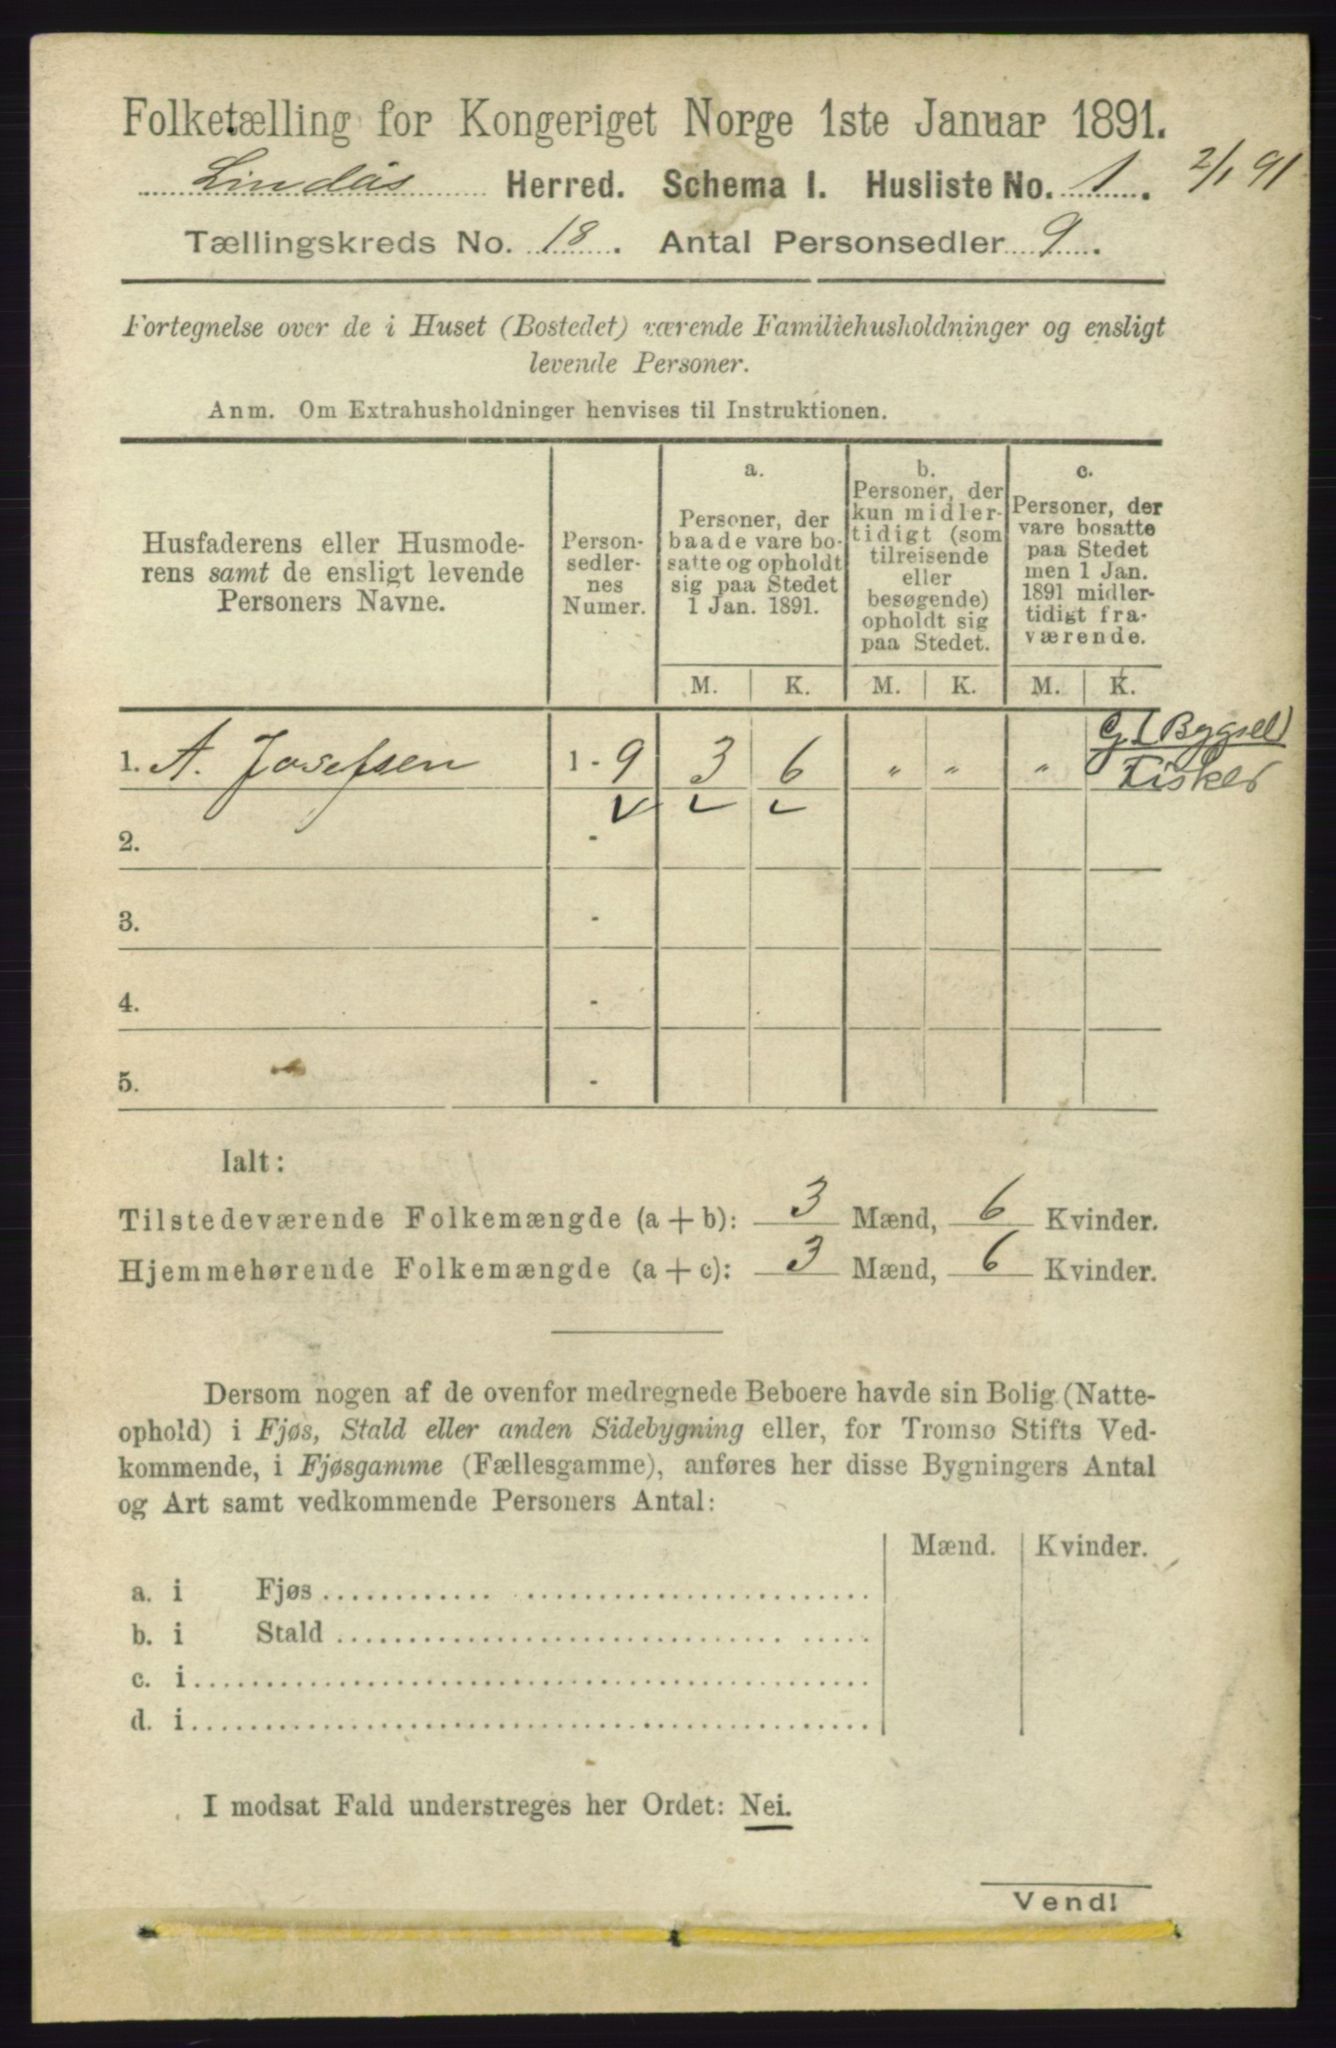 Folketælling for Kongeriget Norge 1ste Januar 1891.
Lindås Herred. Schema I. Husliste No. 1. 2/1 91
Tællingskreds No. 18. Antal Personsedler 9.
Fortegnelse over de i Huset (Bostedet) værende Familiehusholdninger og ensligt
levende Personer.
Anm. Om Extrahusholdninger henvises til Instruktionen.
Husfaderens eller Husmode-
rens samt de ensligt levende
Personers Navne.
Person-
sedler-
nes
Numer.
a.
Personer, der
baade vare bo-
satte og opholdt
sig paa Stedet
1 Jan. 1891.
b.
Personer, der
kun midler-
tidigt (som
tilreisende
eller
besøgende)
opholdt sig
paa Stedet.
c.
Personer, der
vare bosatte
paa Stedet
men 1 Jan.
1891 midler-
tidigt fra-
værende.
M. K. M. K. M. K.
1. A. Josefsen 1 - 9 3 6 " " " Fisker
2. -
3. -
4. -
5. -
Ialt:
Tilstedeværende Folkemængde (a + b): 3 Mænd, 6 Kvinder.
Hjemmehørende Folkemængde (a + c): 3 Mænd, 6 Kvinder.
Dersom nogen af de ovenfor medregnede Beboere havde sin Bolig (Natte-
ophold) i Fjøs, Stald eller anden Sidebygning eller, for Tromsø Stifts Ved-
kommende, i Fjøsgamme (Fællesgamme), anføres her disse Bygningers Antal
og Art samt vedkommende Personers Antal:
Mænd. Kvinder.
a. i Fjøs
b. i Stald
c. i
d. i
I modsat Fald understreges her Ordet: Nei.
Vend!